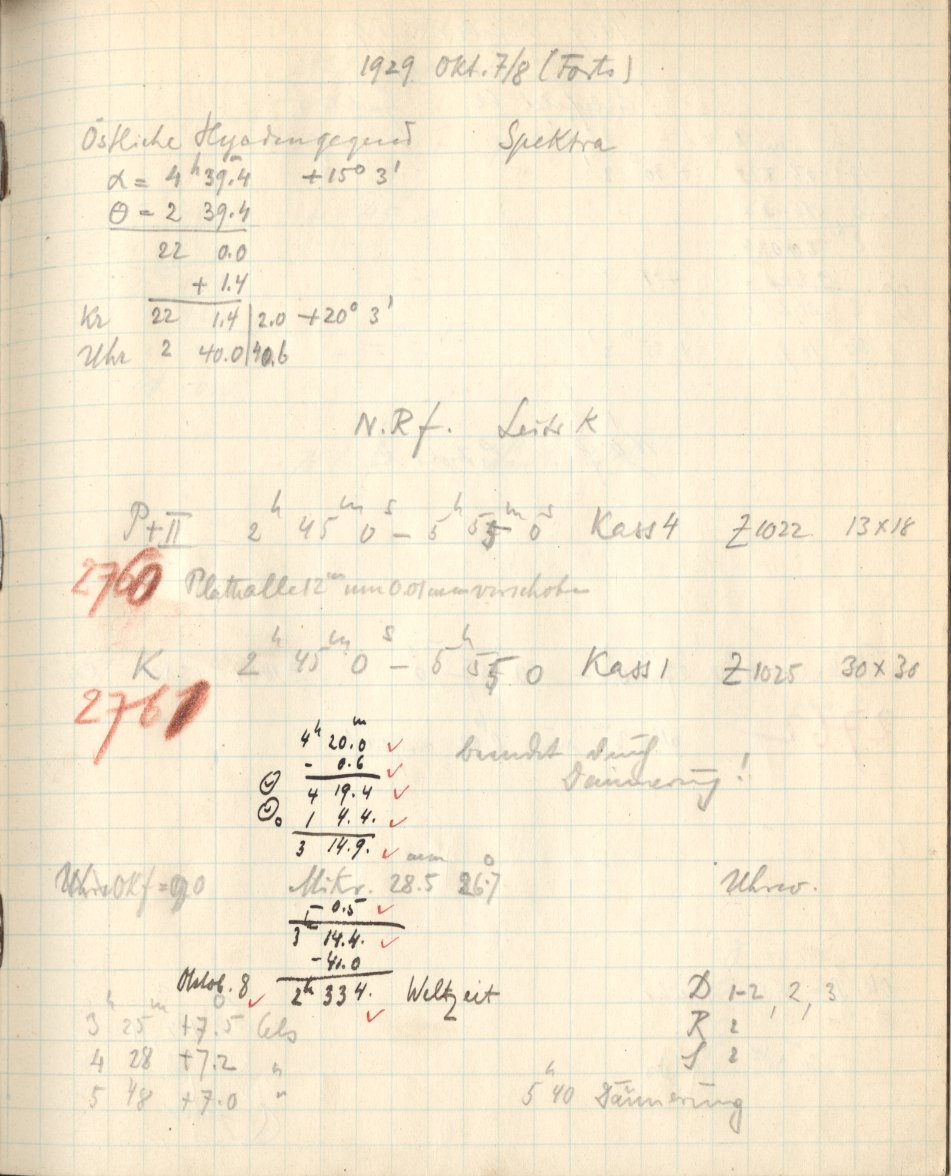 1929 Okt. 7/8 (Forts)
Östliche Hyadengegend Spektra
α = 4h 39.m4 +15° 3'
θ = 2 39.4
22 0.0
+ 1.4
Kr 22 1.4 | 2.0 +20° 3'
Uhr 2 40.0 | 40.6
N.Rf. Leitr K
P+II 2h 45m 0s – 5h 55m 0s Kass 4 Z1022 13×18
2760 um 0.01mm verschoben
K 2h 45m 0s – 5h 55 0 Kass 1 Z1025 30×30
2761
4h 20.0m ✓
- 0.6 ✓ beendet durch
4 19.4 ✓ Dämmerung!
1 4.4. ✓
3 14.9. ✓
Mikr. 28.5 26.7 Uhrw.
- 0.5 ✓
3 14.4. ✓
-41.0
Oktob. 8 ✓ 2h 33 4. Weltzeit D 1-2, 2, 3
✓
3h 25m +7.°5 Cels R 2
4 28 +7.2 " S 2
5 48 +7.0 " 5h 40 Dämmerung